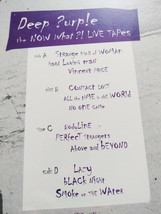 Deep ?urple
the NOW What ?! LIVE TAPes
side A
Strange kind of WOMAN
Hard Loving Man
Vincent PRICE
side B
CONTACT LOST
ALL the TIME in the WORLD
NO ONE CAME
side C
BODYLINE
PERFECT Strangers
Above and BEYOND
side D
LAZY
bLACK Night
Smoke on The WATER